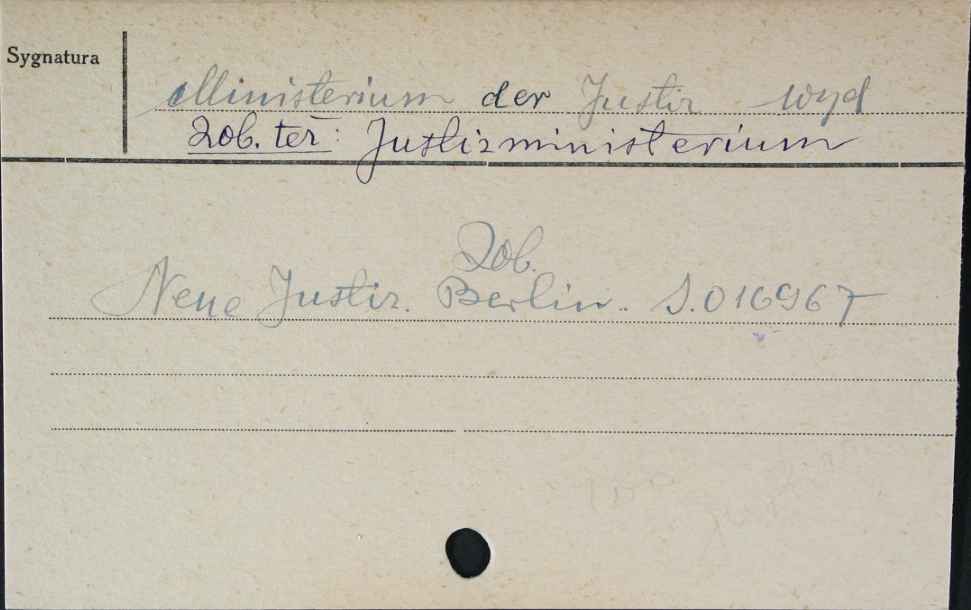 Sygnatura
Ministerium der Justiz wyd
Zob. też: Justizministerium
Zob.
Neue Justiz. Berlin. S.016967